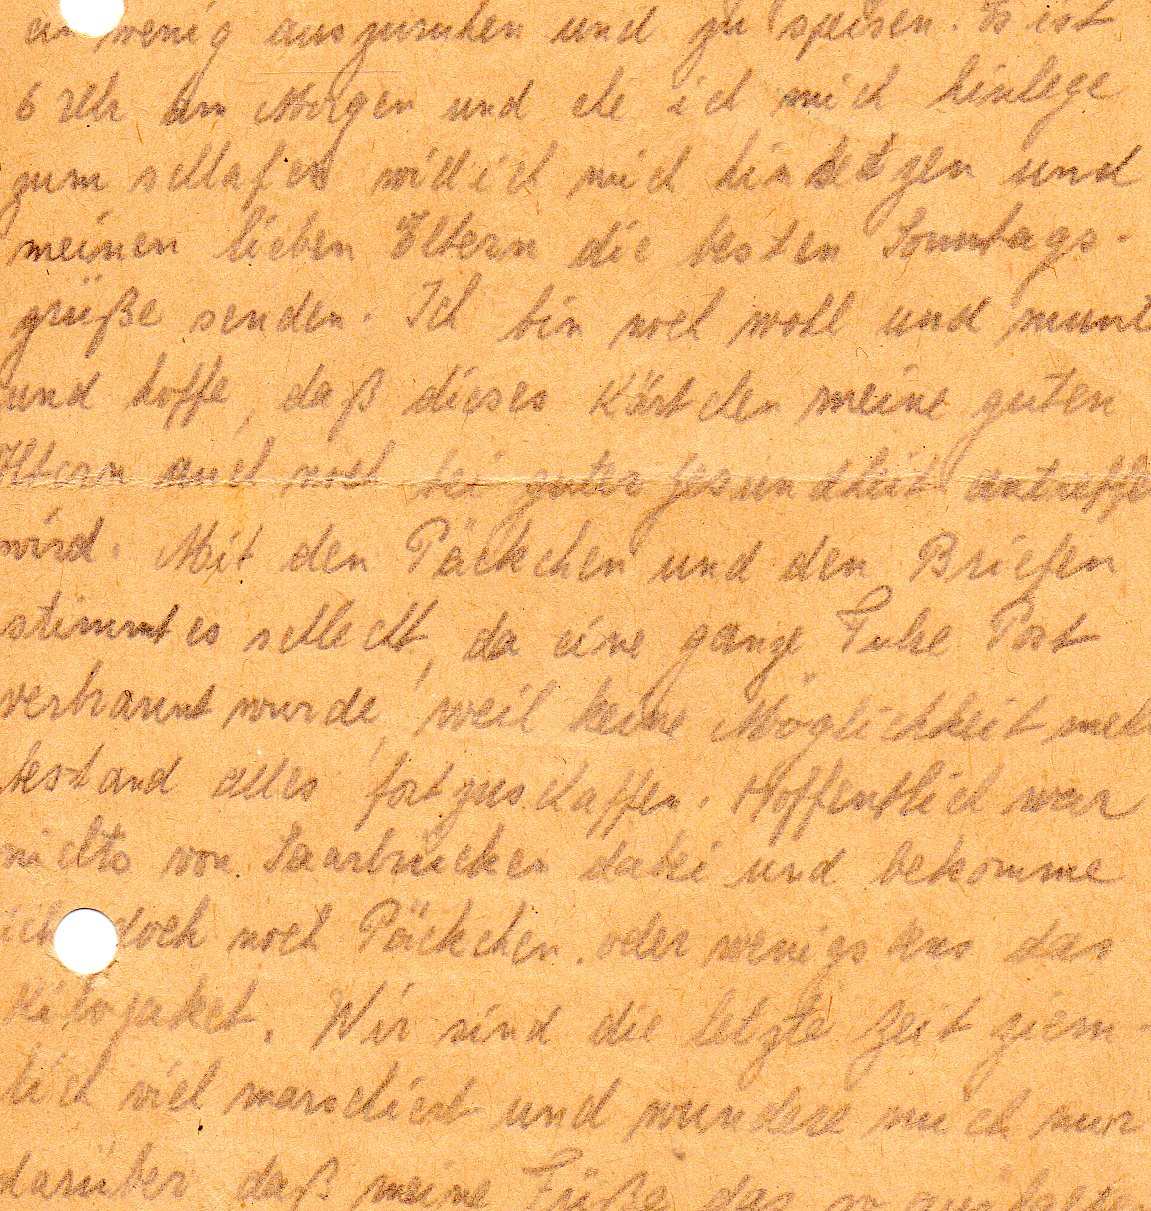 ein wenig auszuruhen und zu speisen. Es ist
6 Uhr am Morgen und ehe ich mich hinlege
zum schlafen will ich mich hinsetzen und
meinen lieben Eltern die besten Sonntags-
grüße senden. Ich bin noch wohl und munt
und hoffe, daß dieses Kärtchen meine guten
Eltern auch noch bei guter Gesundheit antreffe
wird. Mit den Päckchen und den Briefen
stimmt es schlecht, da eine ganze Fuhre Post
verbrannt wurde, weil keine Möglichkeit meh
bestand alles fortzuschaffen. Hoffentlich war
nichts von Saarbrücken dabei und bekomme
ich doch noch Päckchen oder wenigstens das
Kilopaket. Wir sind die letzte Zeit ziem-
lich viel marschiert und wundere mich nur
darüber daß meine Füße das so aushalten